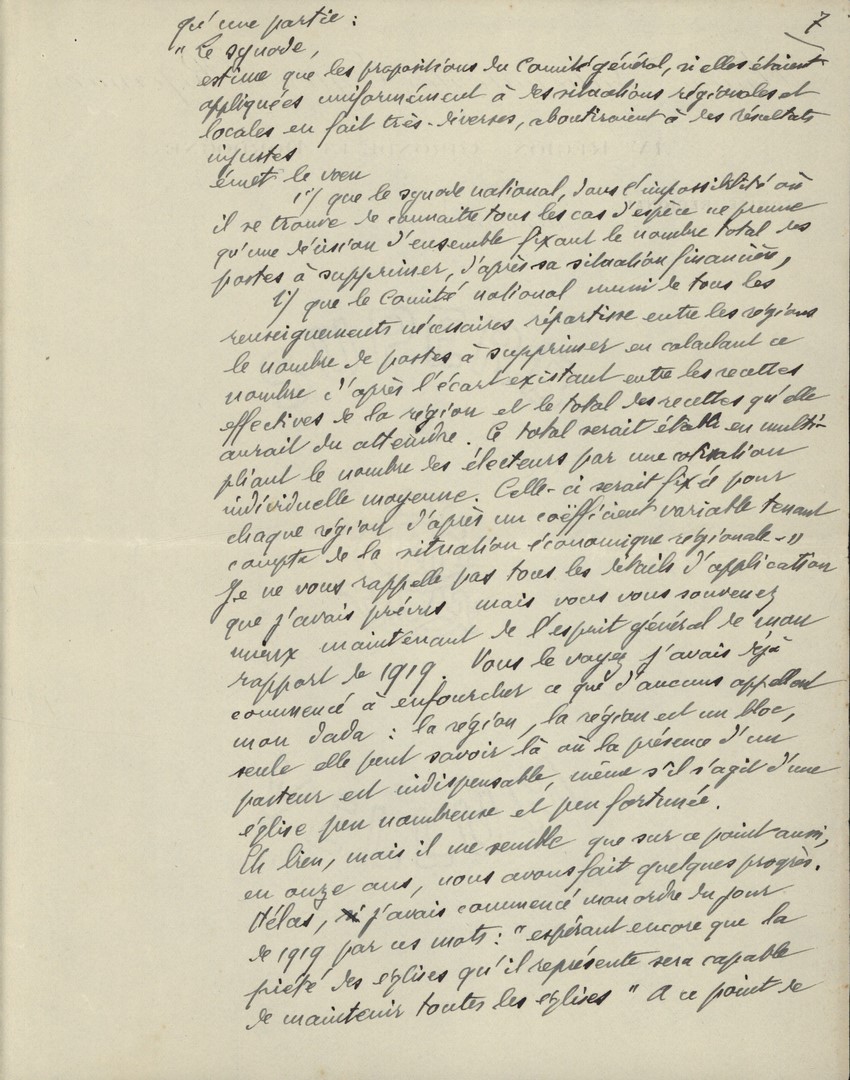 7
qu'une partie :
" Le synode,
estime que les propositions du Comité général, si elles étaient
appliquées uniformément à des situations régionales et
locales en fait très-diverses, aboutiraient à des résultats
injustes
émet le vœu
1°/ que le synode national, dans l'impossibilité où
il se trouve de connaître tous les cas d'espèce ne prenne
qu'une décision d'ensemble fixant le nombre total des
postes à supprimer, d'après sa situation financière,
que le Comité national muni de tous les
renseignements nécessaires répartisse entre les régions
le nombre de postes à supprimer en calculant ce
nombre d'après l'écart existant entre les recettes
effectives de la région et le total des recettes qu'elle
aurait du atteindre. Ce total serait établi en multi-
pliant le nombre des électeurs par une cotisation
individuelle moyenne. Celle-ci serait fixée pour
chaque région d'après un coëfficient variable tenant
compte de la situation économique régionale - "
Je ne vous rappelle pas tous les détails d'application
que j'avais prévus mais vous vous souvenez
mieux maintenant de l'esprit général de mon
rapport de 1919. Vous le voyez j'avais déjà
commencé à enfourcher ce que d'aucuns appellent
mon dada : la région, la région est un bloc,
seule elle peut savoir là où la présence d'un
pasteur est indispensable, même s'il s'agit d'une
église peu nombreuse et peu fortunée.
Eh bien, mais il me semble que sur ce point aussi,
en onze ans, nous avons fait quelques progrès.
Hélas, j'avais commencé mon ordre du jour
de 1919 par ces mots : " espérant encore que la
piété des églises qu'il représente sera capable
de maintenir toutes les églises " A ce point de